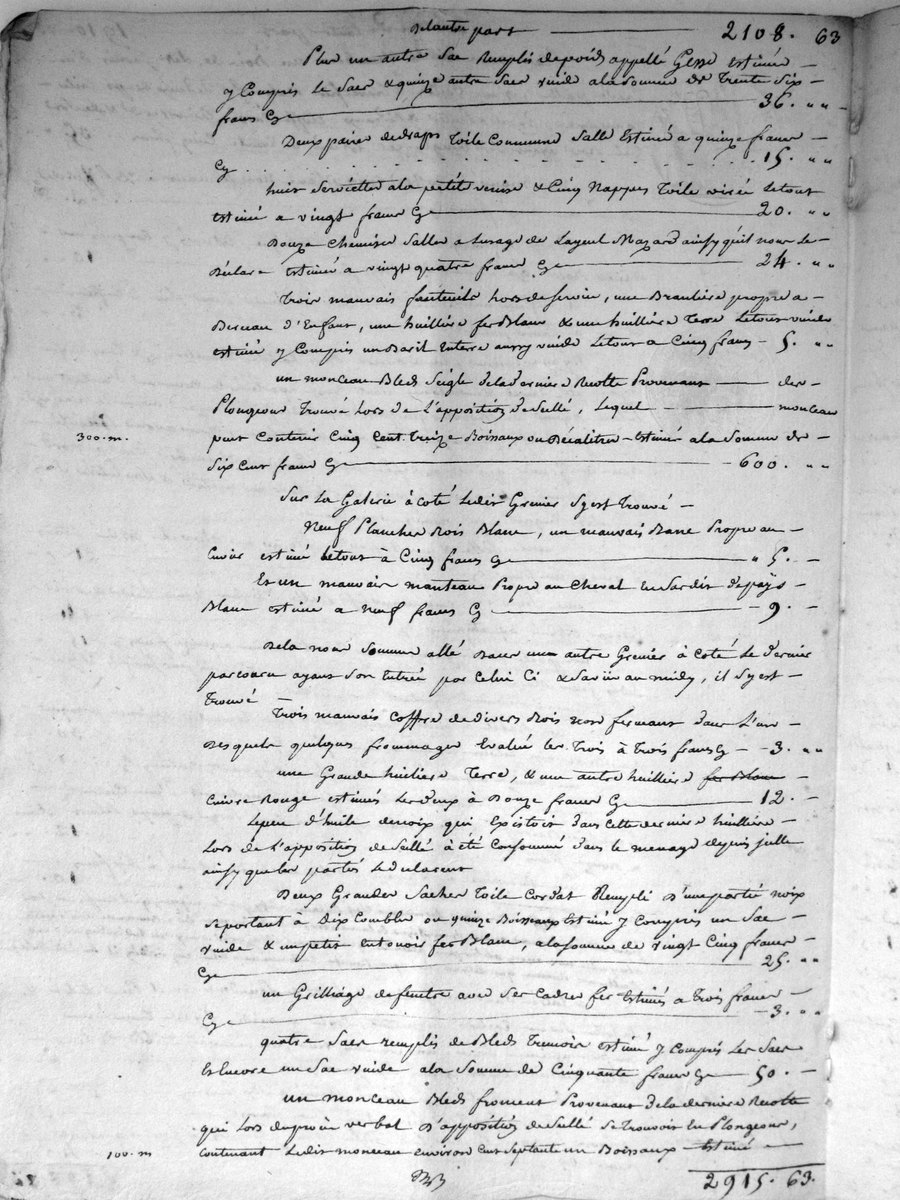 De l'autre part 2108. 63
Plus un autre Sac Remplis de poids appellé Gesse estimé
y Compris Le Sac & quinze autre Sac vuide a la Somme de Trente Six
francs Cy 36. " "
Deux paires de draps Toile Commune Salle Estimé a quinze francs
Cy 15. " "
huit Serviettes a la petite venise & Cinq Nappes Toile Le tout
estimé a vingt francs Cy 20. " "
Douze Chemises Salles a Lusage de Layeul Mazard ainsy quil nous Le
Déclare estimé a vingt quatre francs Cy 24. " "
Trois mauvais fauteuils hors de service, une propre a
Berceau d'Enfant, une huilliere fer Blanc & une huilliere Terre Le tout vuide
estimé y Compris un Baril Enterre aussy vuide Le tout a Cinq francs 5. " "
un monceau Bled Seigle de la dernière Recolte Provenant des
Plongeons Trouvé Lors de L'apposition de Sellé, Lequel monceau
300. m. peut Contenir Cinq Cent Treize Boisseaux ou Décalitres Estimé a la Somme de
Six Cent francs Cy 600. " "
Sur La Galerie à coté Ledit Grenier Sy est Trouvé
Neuf Planches Bois Blanc, un mauvais Banc Propre au
Cuvoir estimé Le tout à Cinq francs Cy " 5. -
Et un mauvais manteau Propre au Cheval en Sardis de pays
Blanc estimé a neuf francs Cy 9. -
De La nous Somme allé Dans un autre Grenier à coté Le dernier
parcouru ayant Son Entrée par Celui Ci & au midy, il Sy est
Trouvé
Trois mauvais Coffre de divers Bois non fermant dans L'un
Desquels quelques frommages Evalué Les Trois à Trois francs Cy 3. " "
une Grande huiliere Terre, & une autre huilliere fer Blanc
Cuivre Rouge estimés Les deux à Douze francs Cy 12. -
Le peu d'huile de noix qui Existoit dans Cette derniere huilliere
Lors de L'apposition de Sellé à été Consommé dans le menage depuis
ainsy que les parties Le déclarent
Deux Grandes Saches Toile Cordat Remplé D'une partie noix
Se portant à Dix Combles ou quinze Boisseaux Estimé y Compris un Sac
vuide & un petit Entonoir fer Blanc, a la Somme de vingt Cinq francs
Cy 25. " "
un Grilliage de fenetre avec Ses Cadre fer Estimés a Trois francs
Cy 3. " "
quatre Sacs remplis de Bleds Tremois estimé y Compris Les Sacs
Et Encore un Sac vuide a la Somme de Cinquante francs Cy 50. -
un monceau Bled froment Provenant de la derniere Recolte
qui Lors du procès verbal D'apposition de Sellé Se Trouvoit En Plongeons,
100. m Contenant Ledit monceau environ Cent Septante un Boisseaux Estimé
2915. 63.